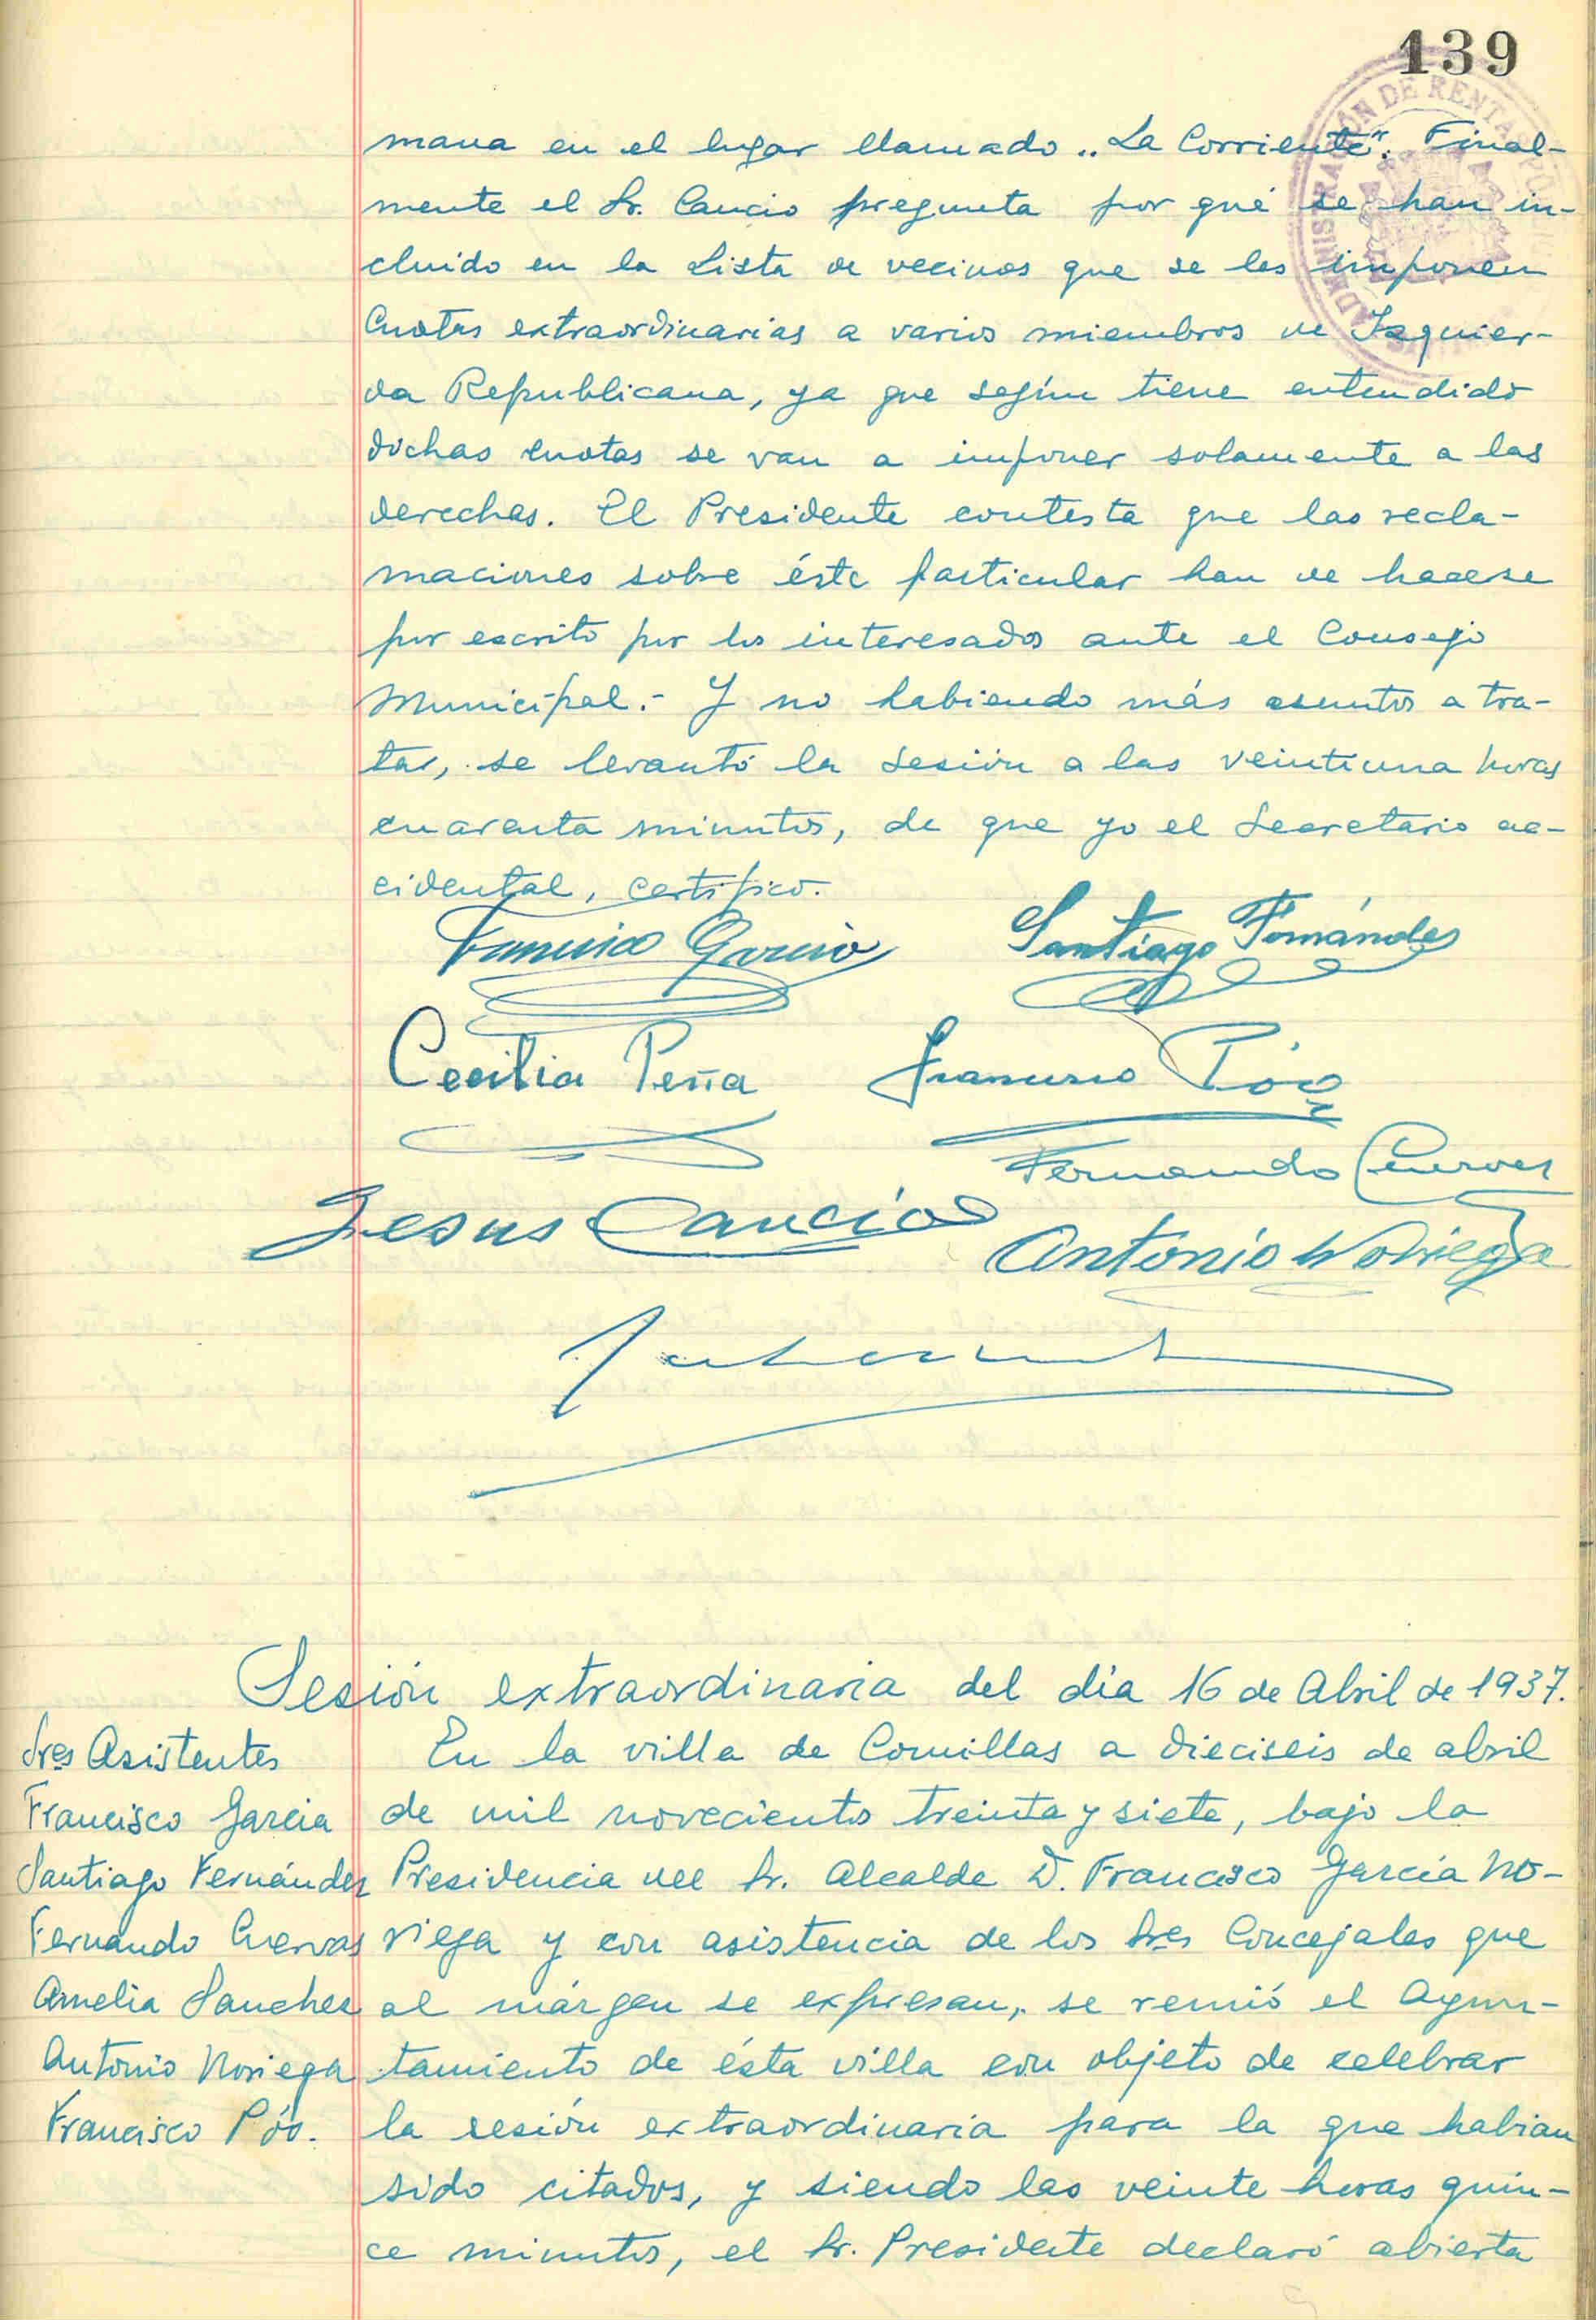 139
ADMINISTRACIÓN DE RENTAS PÚBLICAS
mana en el lugar llamado „La Corriente". Final-
mente el Sr. Cancio pregunta por qué se han in-
cluido en la Lista de vecinos que se les imponen
Cuotas extraordinarias a varios miembros de Izquier-
da Republicana, ya que según tiene entendido
dichas cuotas se van a imponer solamente a las
derechas. El Presidente contesta que las recla-
maciones sobre éste particular han de hacerse
por escrito por los interesados ante el Consejo
Municipal.- Y no habiendo más asuntos a tra-
tar, se levantó la sesión a las veintiuna horas
cuarenta minutos, de que yo el Secretario ac-
cidental, certifico.
Francisco García Santiago Fernández
Cecilia Peña Francisco Póo
Fernando Cuevas
Jesus Cancio
Antonio Noriega
Sesión extraordinaria del día 16 de Abril de 1937.
Sres Asistentes
Francisco Garcia
Santiago Fernández
Fernando Cuevas
Amelia Sanchez
Antonio Noriega
Francisco Póo.
En la villa de Comillas a dieciseis de abril
de mil novecientos treinta y siete, bajo la
Presidencia del Sr. Alcalde D. Francisco García No-
riega y con asistencia de los Sres Concejales que
al márgen se expresan, se reunió el Ayun-
tamiento de ésta villa con objeto de celebrar
la sesión extraordinaria para la que habian
sido citados, y siendo las veinte horas quin-
ce minutos, el Sr. Presidente declaró abierta